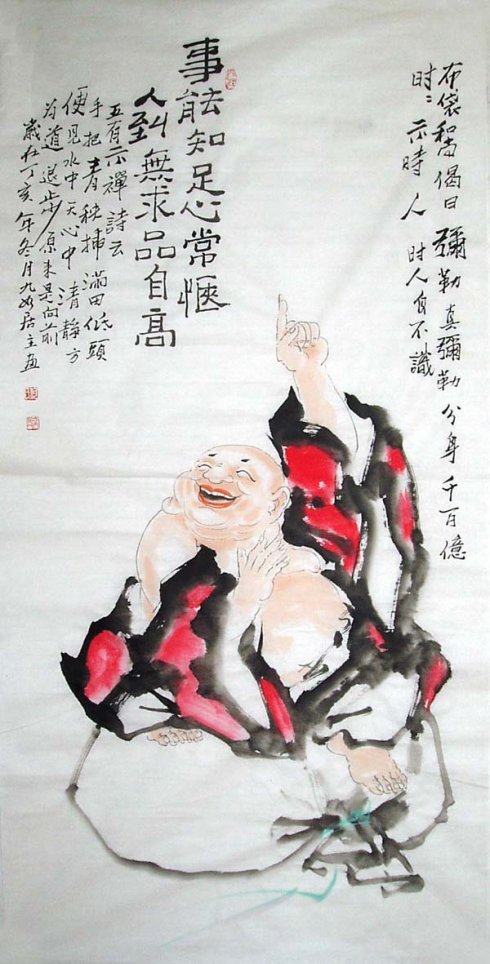 布袋和尚偈曰 彌勒真彌勒 分身千百億
时〻示時人 时人自不識
事能知足心常惬
人到無求品自高
有示禪詩云
手把青秧插滿田低頭
便見水中天心中清静方
为道退步原来是向前
歲在丁亥年冬月九如居主画